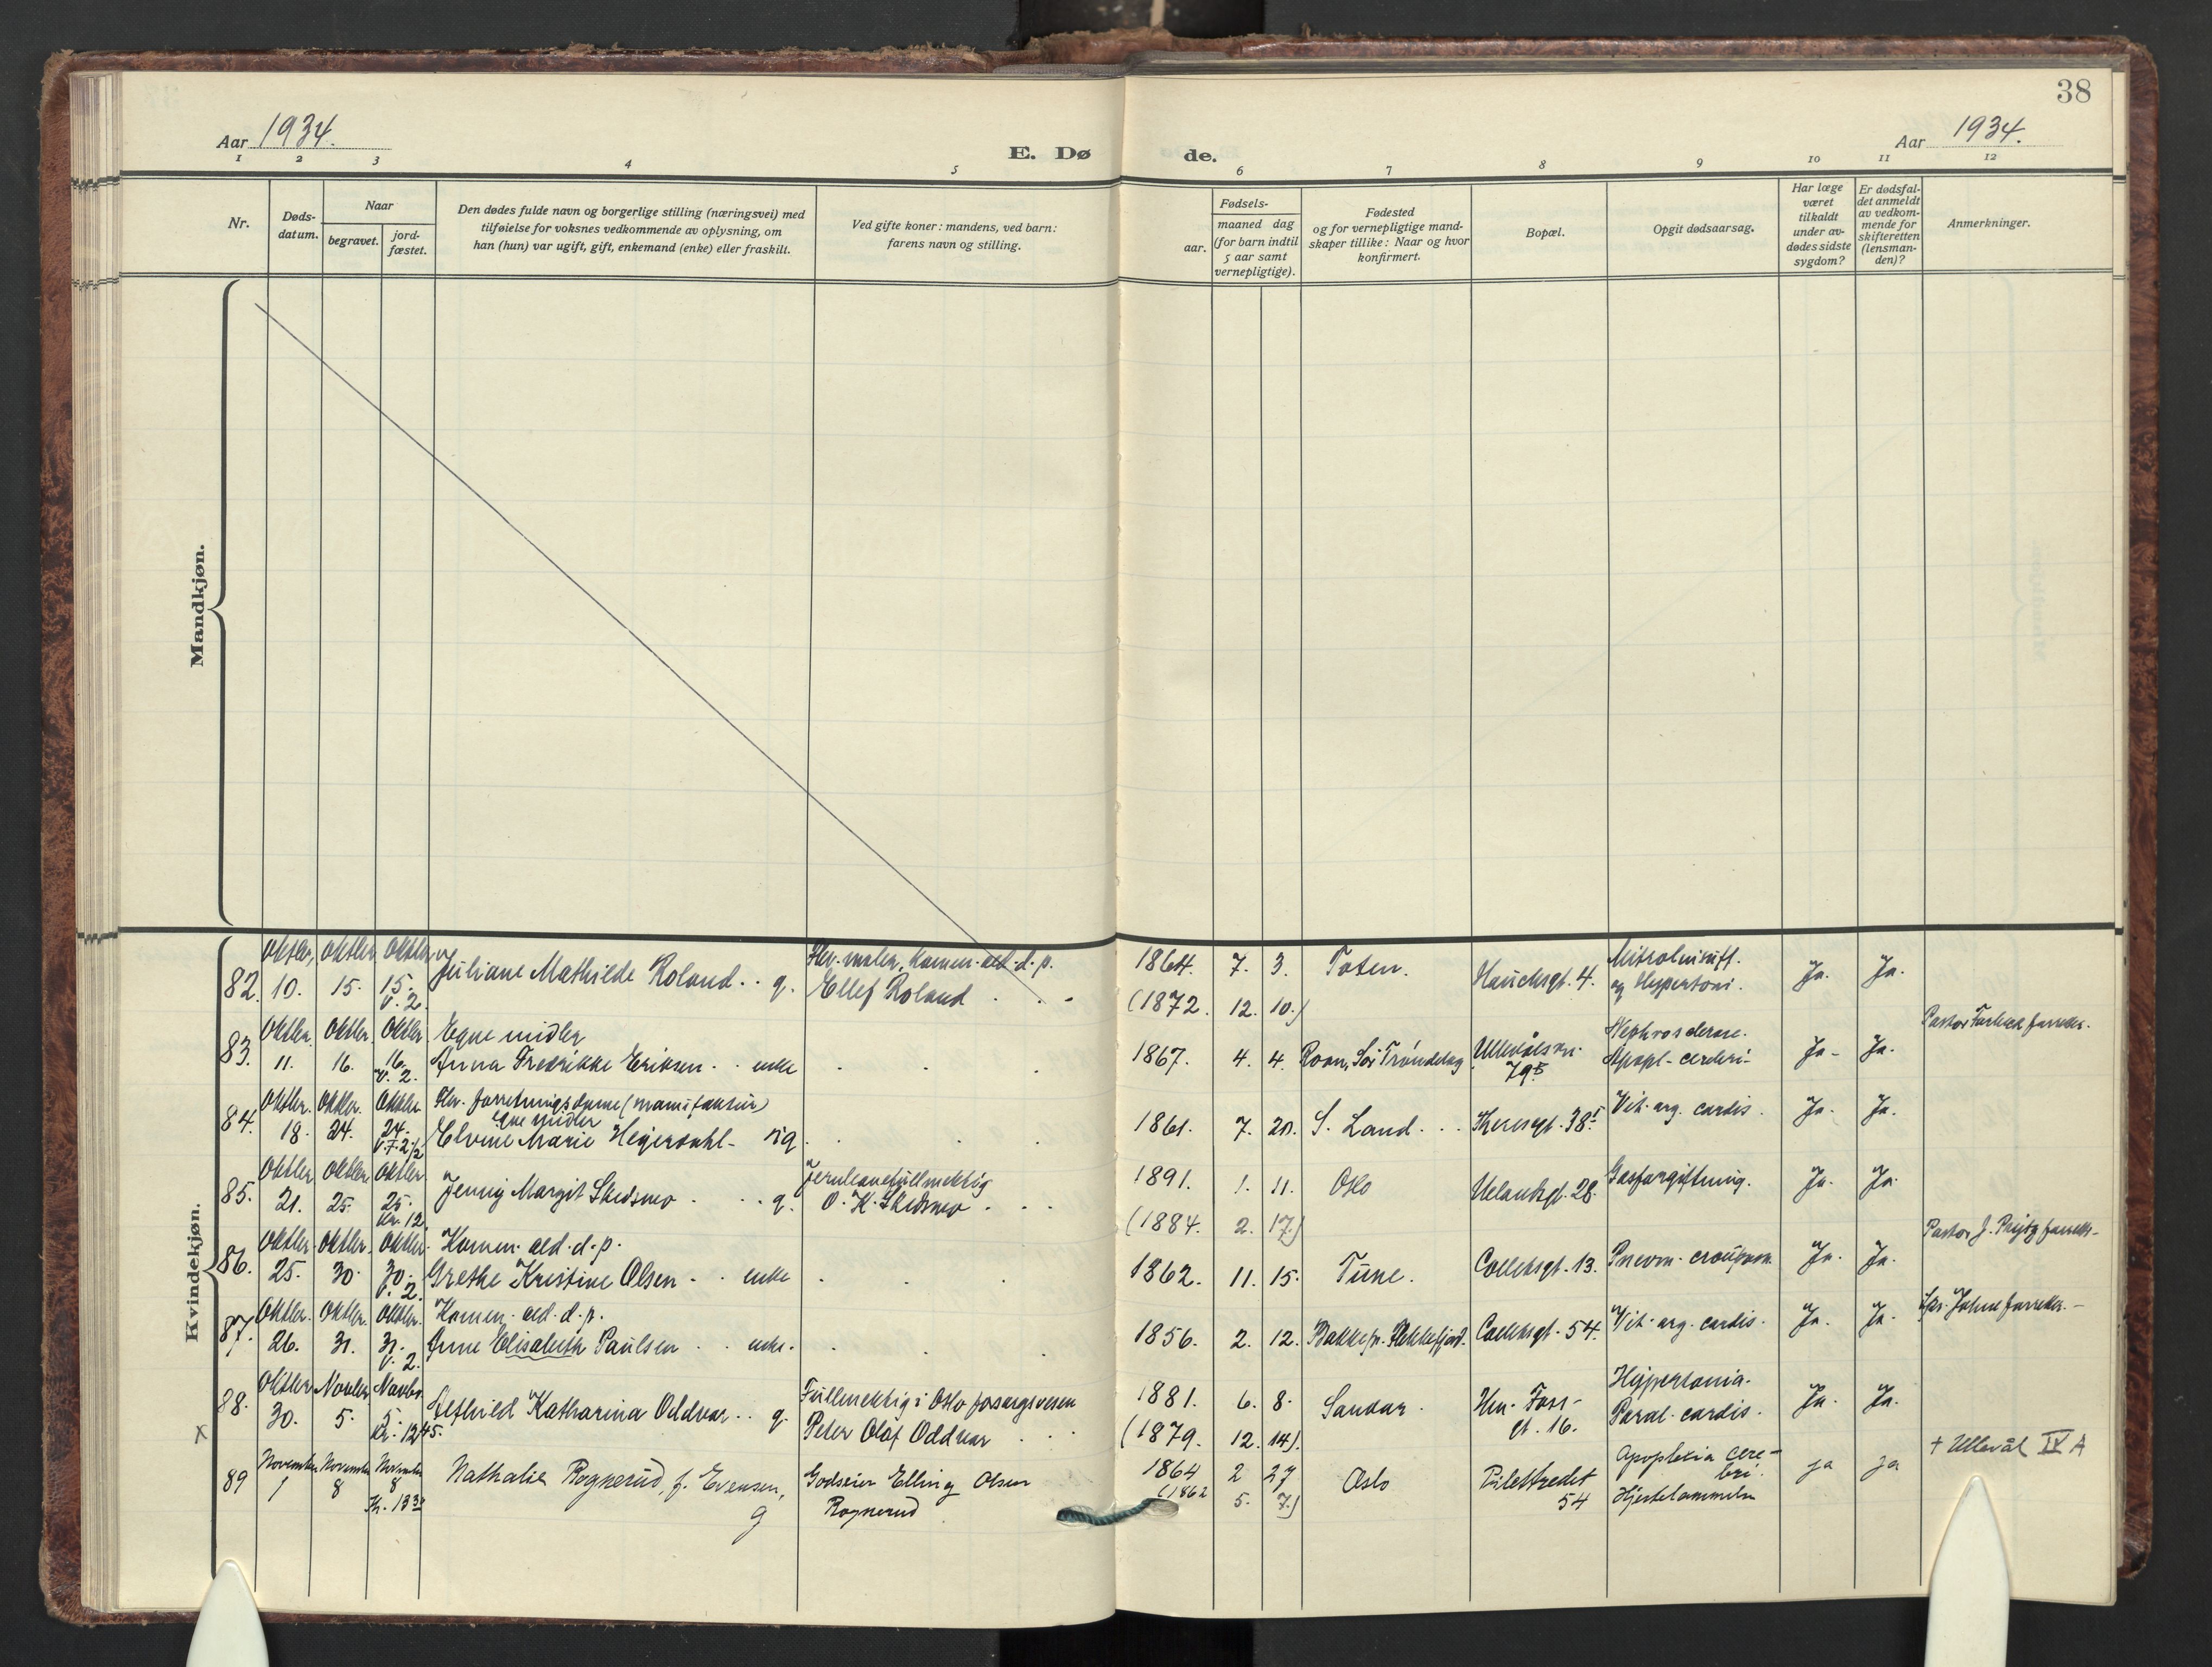 38
Aar 1934.
E. Dø de.
Aar 1934.
1 2 3 4 5 6 7 8 9 10 11 12
Nr.
Døds-
datum.
Naar
begravet.
jord-
fæstet.
Den dødes fulde navn og borgerlige stilling (næringsvei) med
tilføielse for voksnes vedkommende av oplysning, om
han (hun) var ugift, gift, enkemand (enke) eller fraskilt.
Ved gifte koner: mandens, ved barn:
farens navn og stilling.
Fødsels-
aar.
maaned dag
(for barn indtil
5 aar samt
vernepligtige).
Fødested
og for vernepligtige mand-
skaper tillike: Naar og hvor
konfirmert.
Bopæl.
Opgit dødsaarsag.
Har læge
været
tilkaldt
under av-
dødes sidste
sygdom?
Er dødsfal-
det anmeldt
av vedkom-
mende for
skifteretten
(lensman-
den)?
Anmerkninger.
Mandkjøn.
Kvindekjøn.
Oktbr. Oktbr. Oktbr.
82. 10. 15. 15. Juliane Mathilde Roland . . g. Ellef Roland 1864. 7. 3. Toten. Hauchsgt. 4. og Hypertoni. Ja. Ja.
V. 2. (1872. 12. 10.)
Oktbr. Oktbr. Oktbr. Egne midler
83. 11. 16. 16. Anna Fredrikke Eriksen . . enke 1867. 4. 4. Roan, Sør Trøndelag Ullevålsvn. Apopl. cerebri Ja. Ja. Pastor
V. 2. 79
Oktbr. Oktbr. Oktbr. Hr. forretningsdame (manufaktur)
Egne midler
84. 18. 24. 24. Marie ug 1861. 7. 20. S. Land . . Theresgt. 38 Vit. org. cordis. Ja. Ja.
Oktbr. Oktbr. Oktbr.
85. 21. 25. 25. Jenny Margit Skedsmo . . g. O. K. Skedsmo . . . 1891. 1. 11. Oslo Uelandsgt. 28. Gasforgiftning. Ja. Ja.
Kr. 12 (1884. 2. 17.)
Oktbr. Oktbr. Oktbr. Komm. ald. d. p.
86. 25. 30. 30. Grethe Kristine Olsen . . enke 1862. 11. 15. Tune. Collettsgt. 13. Pneum. crouposa. Ja. Ja. Pastor J.
V. 2.
Oktbr. Oktbr. Oktbr. Komm. ald. d. p.
87. 26. 31. 31. Anne Elisabeth Paulsen . . enke. 1856. 2. 12. Bakke pr. Flekkefjord. Collettsgt. 54. Vit. org. cordis. Ja. Ja.
V. 2.
Oktbr. Novbr. Novbr. Fullmektig i Oslo forsorgsvesen Hypertonia.
88. 30. 5. 5. Katharina Oddvar . . g. Peter Olaf Oddvar 1881. 6. 8. Sandar. Hm. Foss- gt. 16. Paral. cordis. Ja. Ja.
Kr. 12 45. (1879. 12. 14).
X
November November November
89 1 8 8 Nathalie Rognerud, f. Evensen, g Godseier Elling Olsen Rognerud 1864 2 27 Oslo Pilestredet 54 Apoplexia cere-
bri.
Hjertelammelse ja ja + Ullevål IV A
Kr. 13 30 (1862 5. 7.)